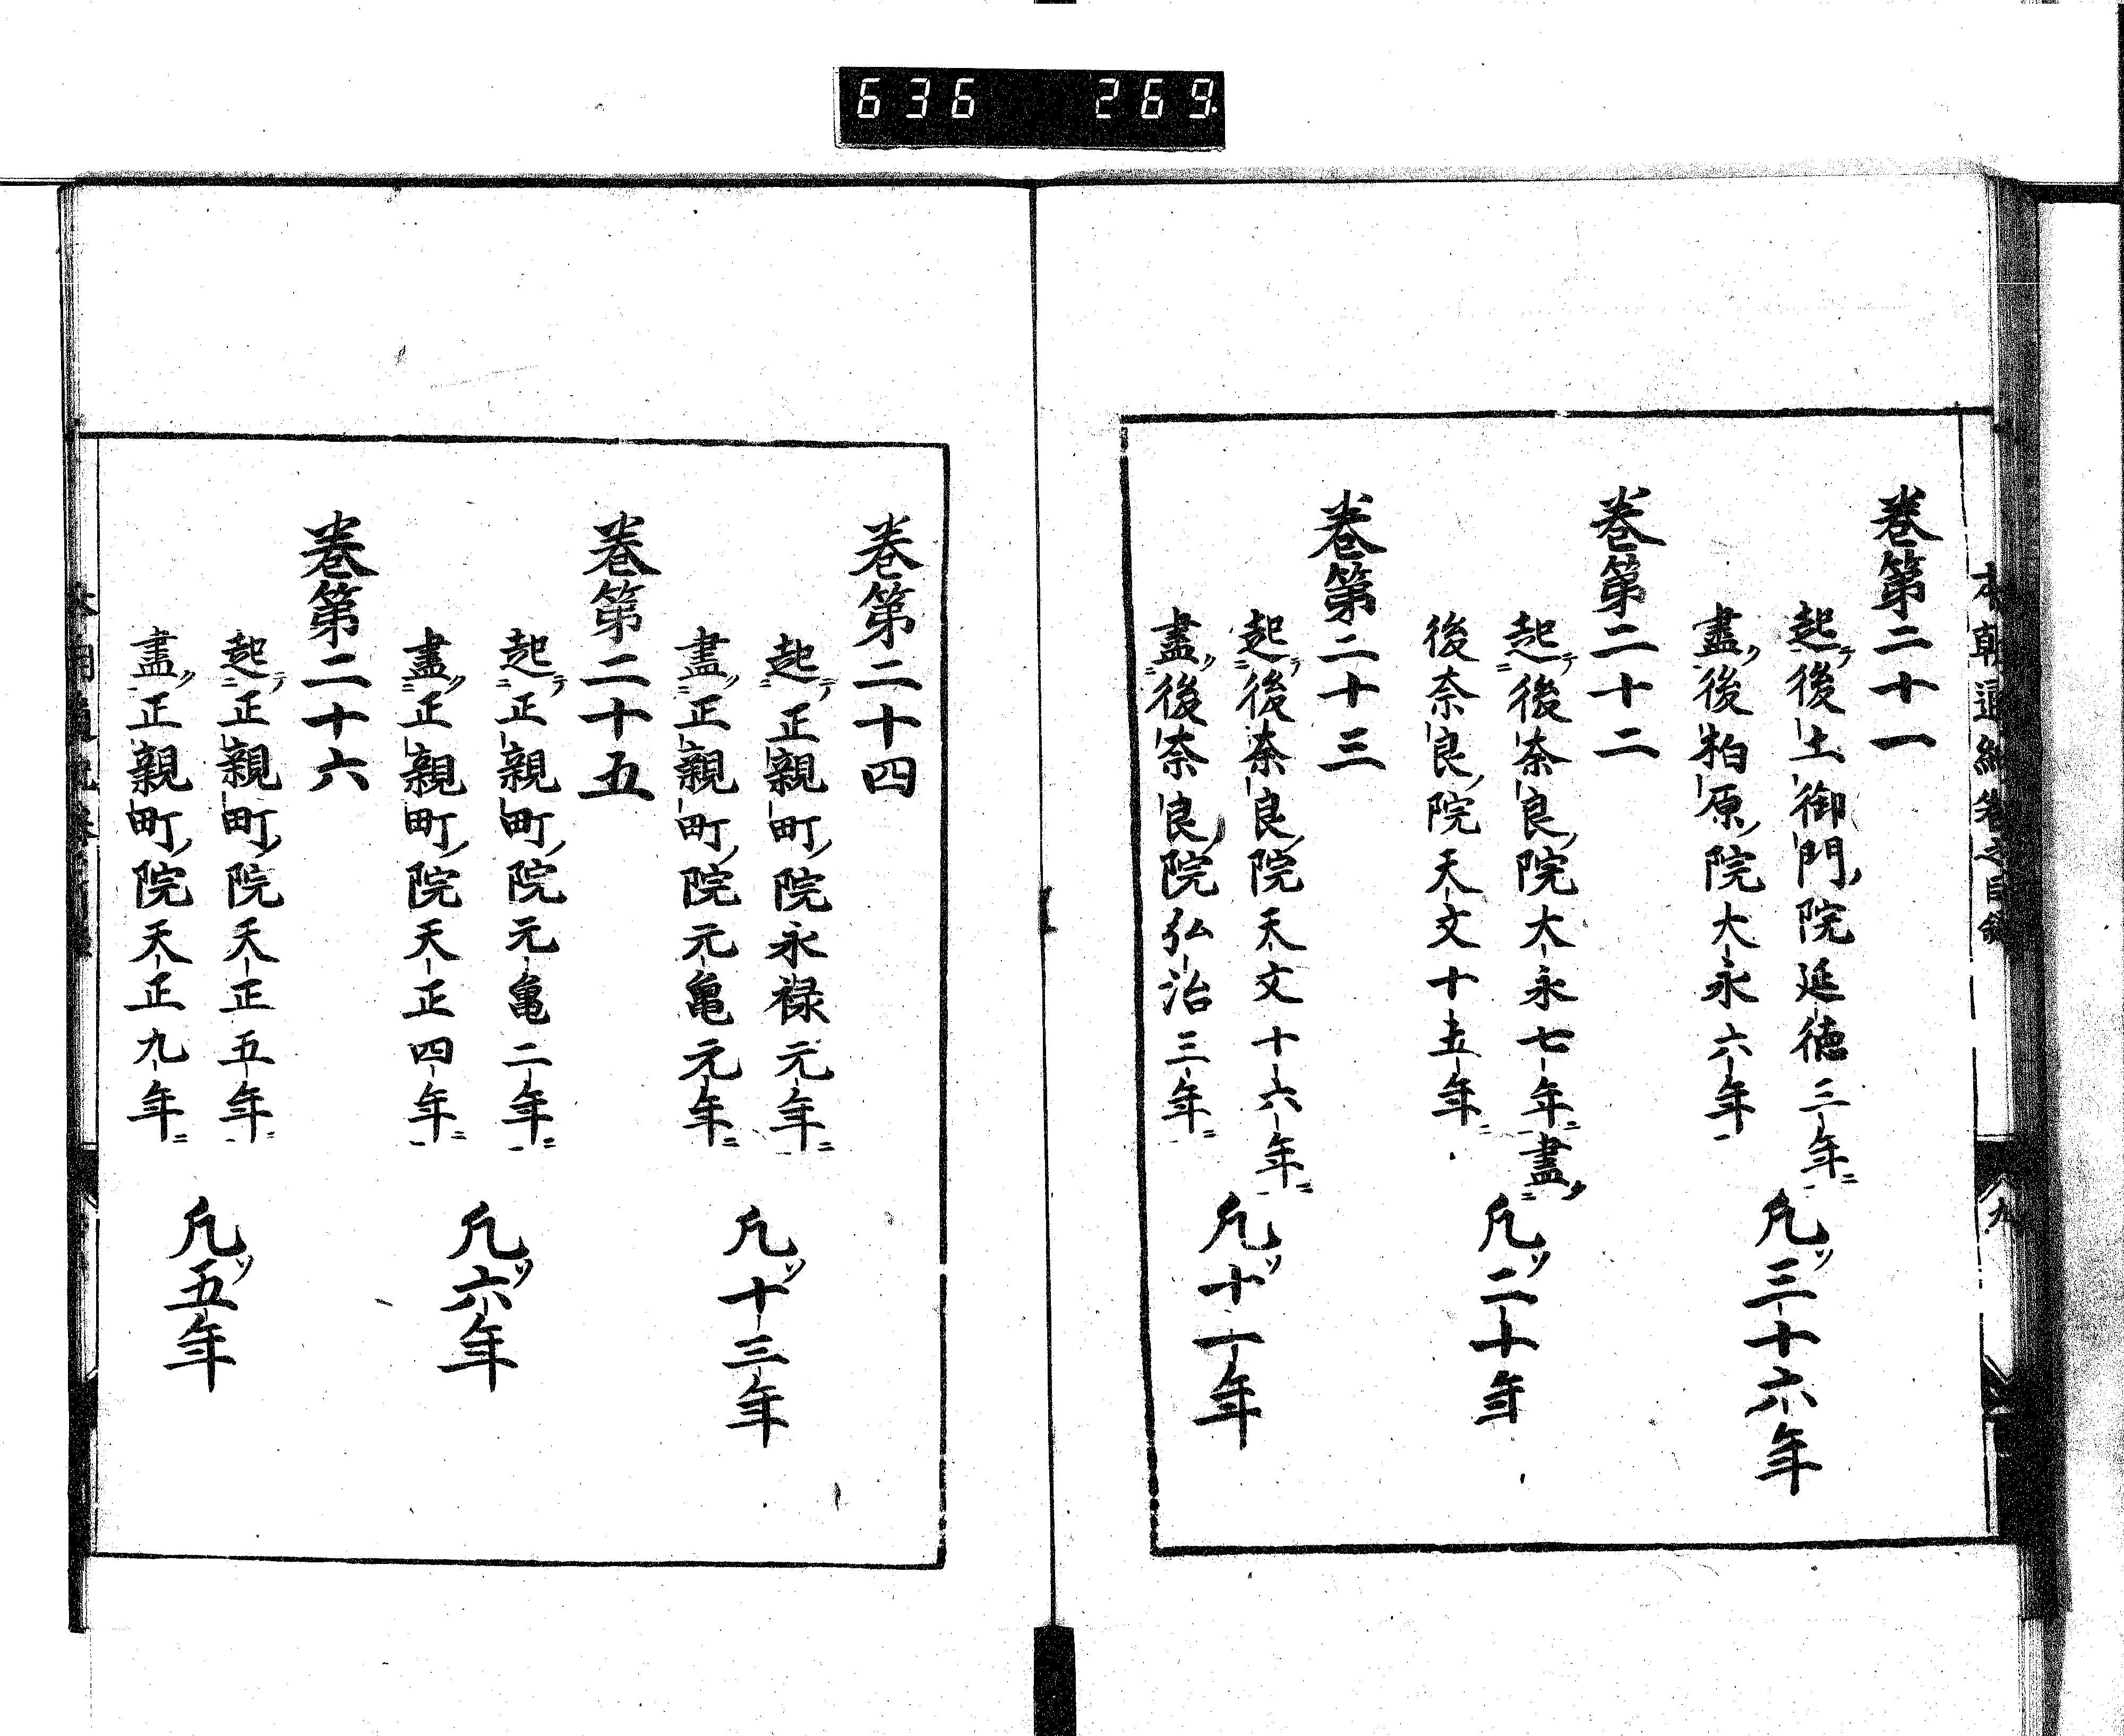 636 269
本朝通紀卷之目錄
九
卷第二十一
起後土御門院延徳三年
盡後柏原院大永六年
凢三十六年
卷第二十二
起後奈良院大永七年盡
後奈良院天文十五年
凢二十年
卷第二十三
起後奈良院天文十六年
盡後奈良院弘治三年
凢十一年
卷第二十四
起正親町院永禄元年
盡正親町院元亀元年
凢十三年
卷第二十五
起正親町院元亀二年
盡正親町院天正四年
凢六年
卷第二十六
起正親町院天正五年
盡正親町院天正九年
凢五年